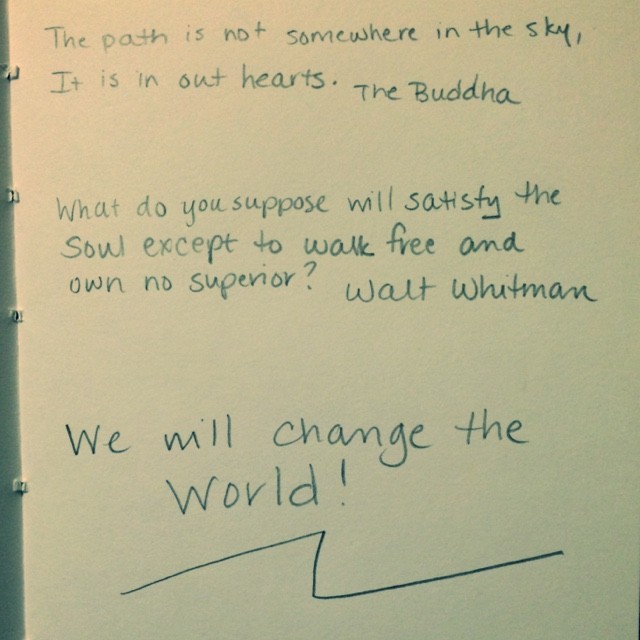 The path is not somewhere in the sky,
It is in out hearts. The Buddha
What do you suppose will satisfy the
Soul except to walk free and
own no superior? Walt Whitman
We will change the
World!